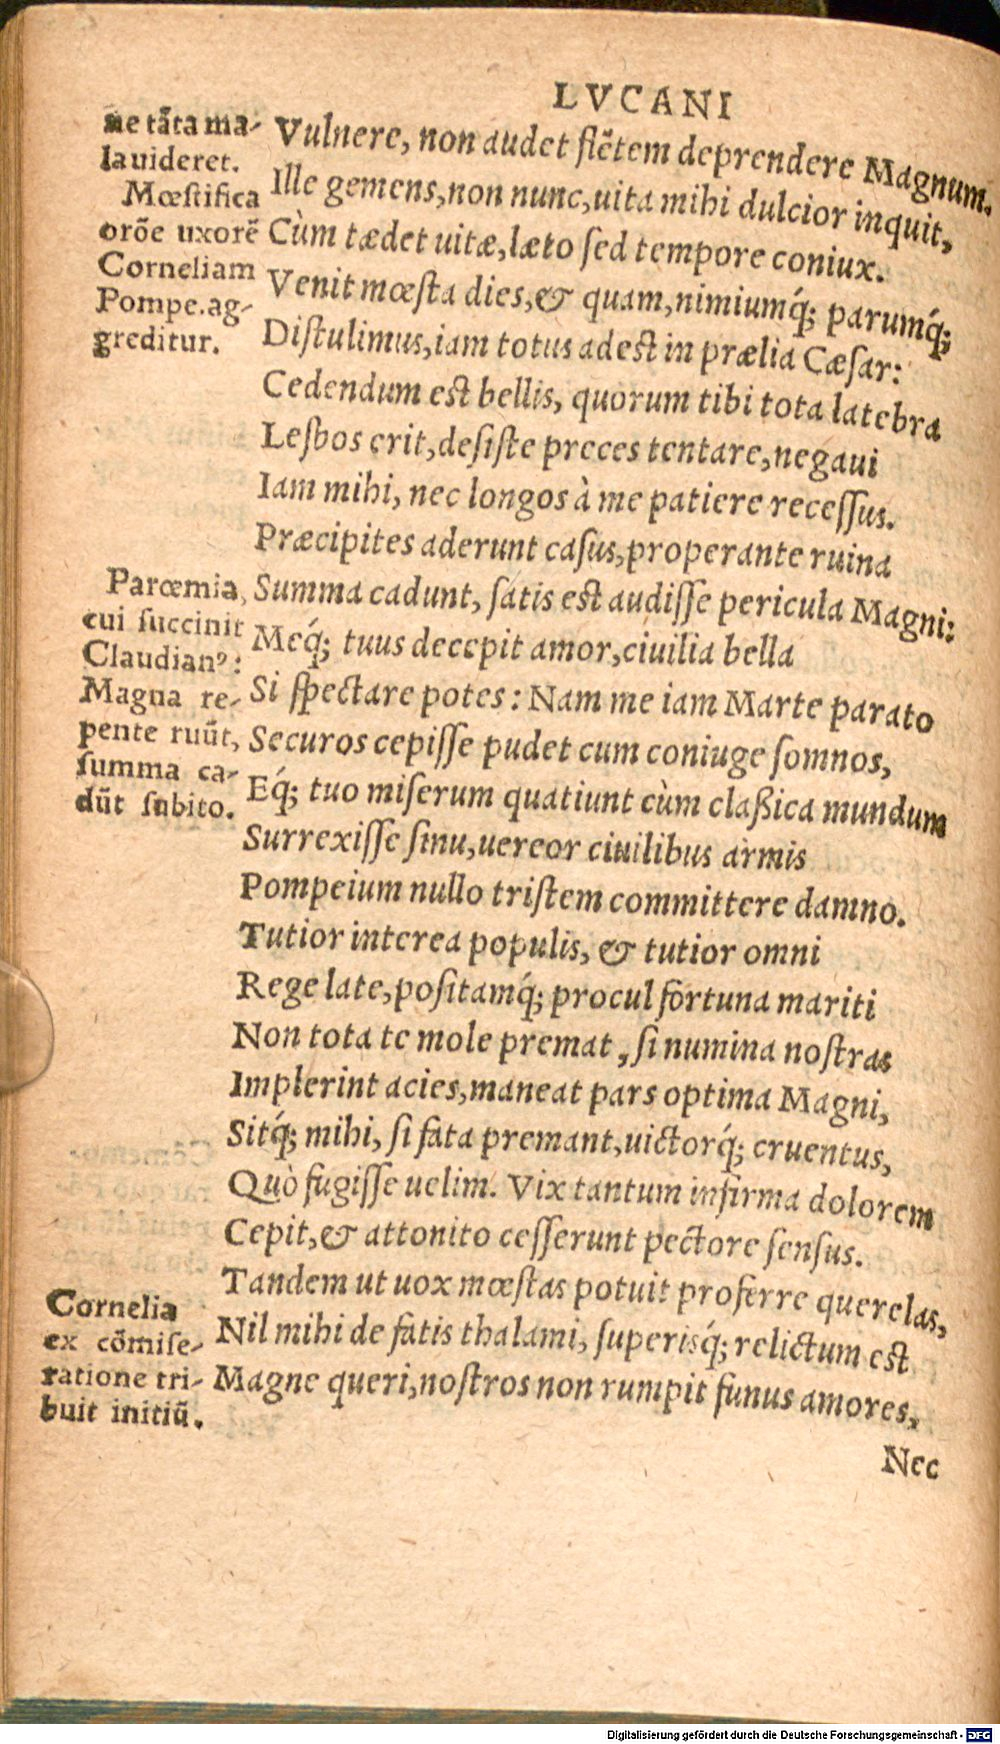 LVCANI
ne tãta ma-
la uideret.
Mœstifica
orõe uxorẽ
Corneliam
Pompe. ag-
greditur.
Vulnere, non audet flẽtem deprendere Magnum.
Ille gemens, non nunc, uita mihi dulcior inquit,
Cùm tædet uitæ, læto sed tempore coniux.
Venit mœsta dies, & quam, nimiumq́; parumq́;
Distulimus, iam totus adest in prælia Cæsar:
Cedendum est bellis, quorum tibi tota latebra
Lesbos erit, desiste preces tentare, negaui
Iam mihi, nec longos à me patiere recessus.
Præcipites aderunt casus, properante ruina
Parœmia,
cui succinit
Claudianꝰ:
Magna re-
pente ruũt,
summa ca-
dũt subito.
Summa cadunt, satis est audisse pericula Magni:
Meq́; tuus decepit amor, ciuilia bella
Si spectare potes: Nam me iam Marte parato
Securos cepisse pudet cum coniuge somnos,
Eq́; tuo miserum quatiunt cùm classica mundum
Surrexisse sinu, uereor ciuilibus armis
Pompeium nullo tristem committere damno.
Tutior interea populis, & tutior omni
Rege late, positamq́; procul fortuna mariti
Non tota te mole premat, si numina nostras
Implerint acies, maneat pars optima Magni,
Sitq́; mihi, si fata premant, uictorq́; cruentus,
Quò fugisse uelim. Vix tantum infirma dolorem
Cepit, & attonito cesserunt pectore sensus.
Tandem ut uox mœstas potuit proferre querelas,
Cornelia
ex cõmise-
ratione tri-
buit initiũ.
Nil mihi de fatis thalami, superisq́; relictum est
Magne queri, nostros non rumpit funus amores,
Nec
Digitalisierung gefördert durch die Deutsche Forschungsgemeinschaft - DFG